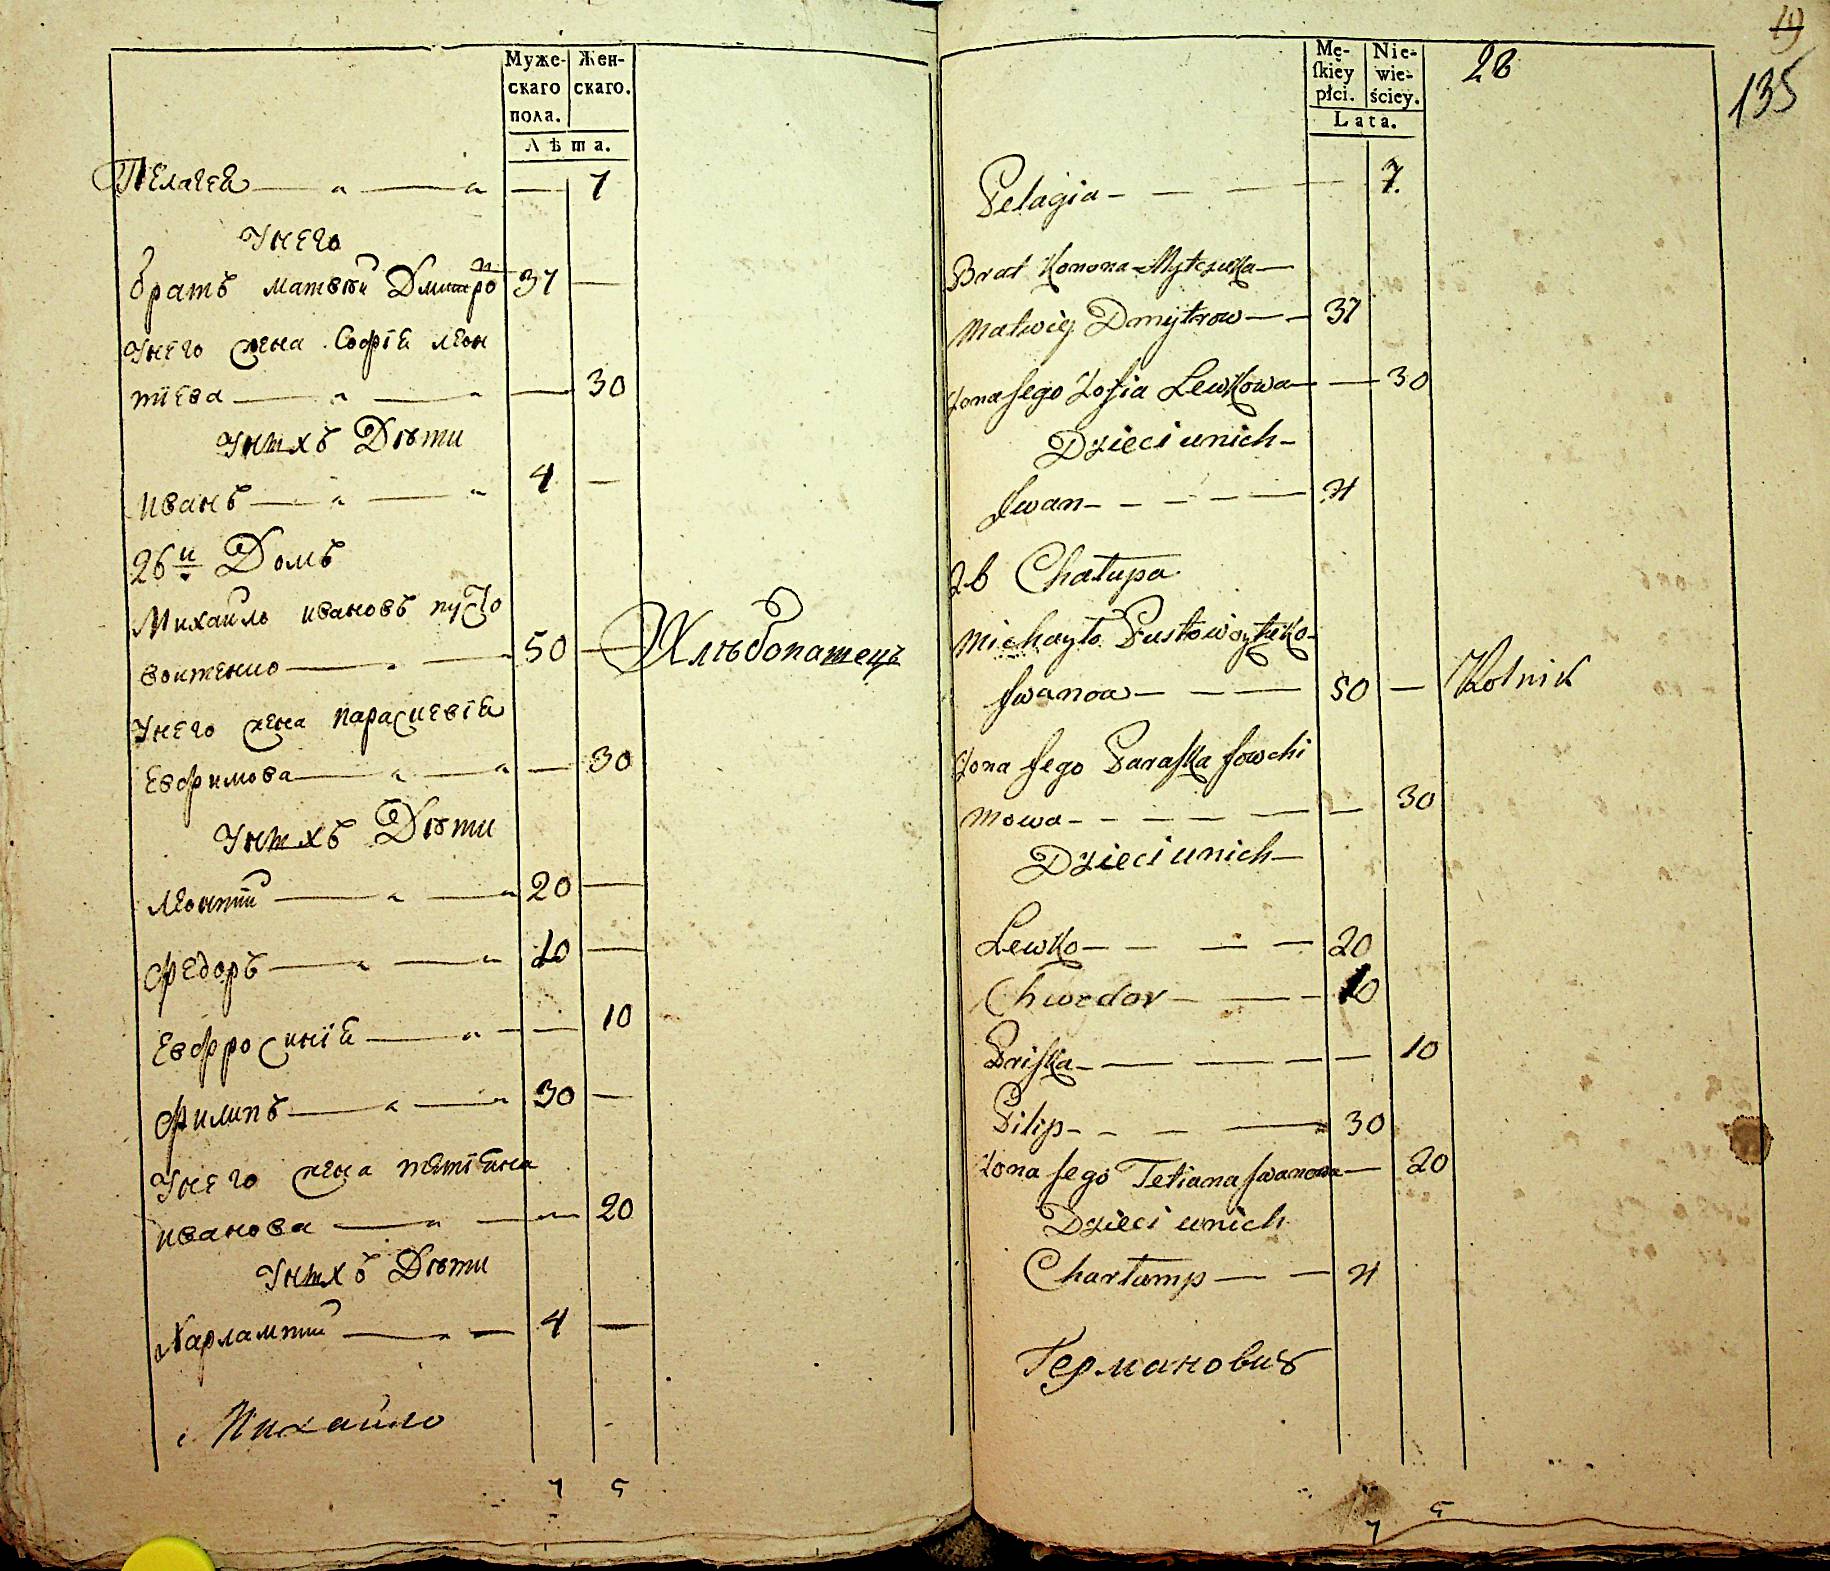 Муже-
скаго
пола.
Жен-
скаго.
Лѣта.
Пелагея — " — " — 7
У него
братъ матвѣй Дмитро 37 —
У него жена Софія леон
тіева — " — " — 30
У нихъ Дѣти
иванъ — " — " 4 —
26й Домъ
Михаилъ ивановъ пусто
войтенко — " — " 50 — Хлѣбопашецъ
У него жена параскевія
Евфимова — " — " — 30
У нихъ Дѣти
леонтій — " — " 20 —
Федоръ — " — " 10 —
Евфросинія — " — — 10
Филипъ — " — " 30 —
У него жена татіана
иванова — " — " — 20
У нихъ Дѣти
Харлампій — " — 4 —
Михайло
7 5
Mę-
ſkiey
płci.
Nie-
wie-
ściey.
Lata.
28
19
135
Pelagia — — — 7.
Brat Konona Mytczuka —
Matwiey Dmytrow — — 37
Żona Jego Zofia Lewkowa — — 30
Dzieci unich —
Jwan — — — — 4
26 Chałupa
Michayło Pustowoytęko
Jwanow — — — 50 — Rolnik
Żona Jego Paraſka Jowchi
mowa — — — — — 30
Dzieci unich —
Lewko — — — — 20
Chwedor — — — 10
Priſka — — — — — 10
Pilip — — — — 30
Żona Jego Tetiana Jwanowa — 20
Dzieci unich
Chartamp — — 4
Германовичъ
7 5